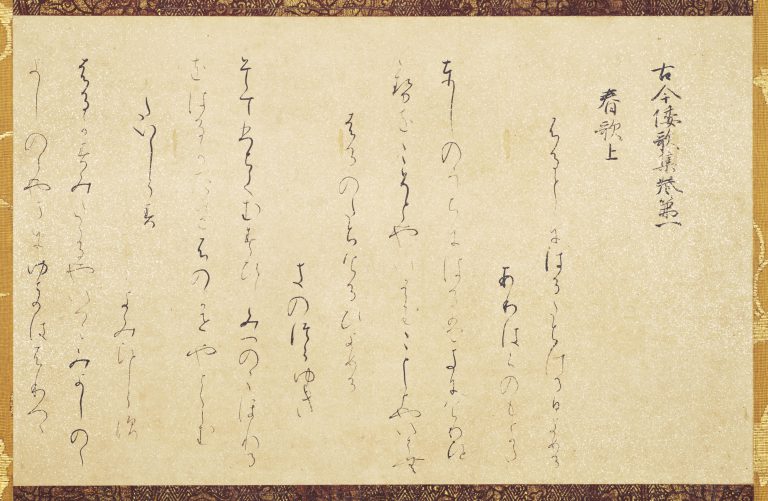 古今倭歌集巻第一
春歌上
ふるとしにはるたちける日よめる
ありはらのもとかた
としのうちにはるはきにけりひとゝ
せをこそとやいはむことしとやいはむ
はるのたちけるひよめる
きのつらゆき
そてひちてむすひしみつのこほれる
をはるたつけふのかせやとくらむ
たいしらす
よみひとしらす
はるかすみたてるやいつこみよしのゝ
よしのゝやまにゆきはふりつゝ